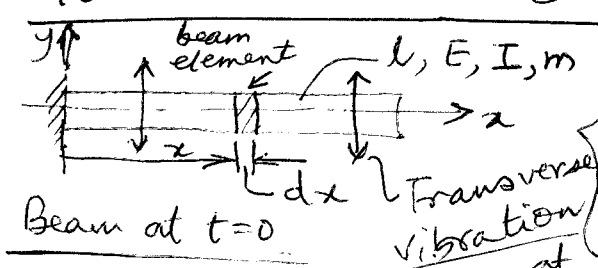 y
beam
element
l, E, I, m
x
x
dx
Transverse
vibration
at
Beam at t=0